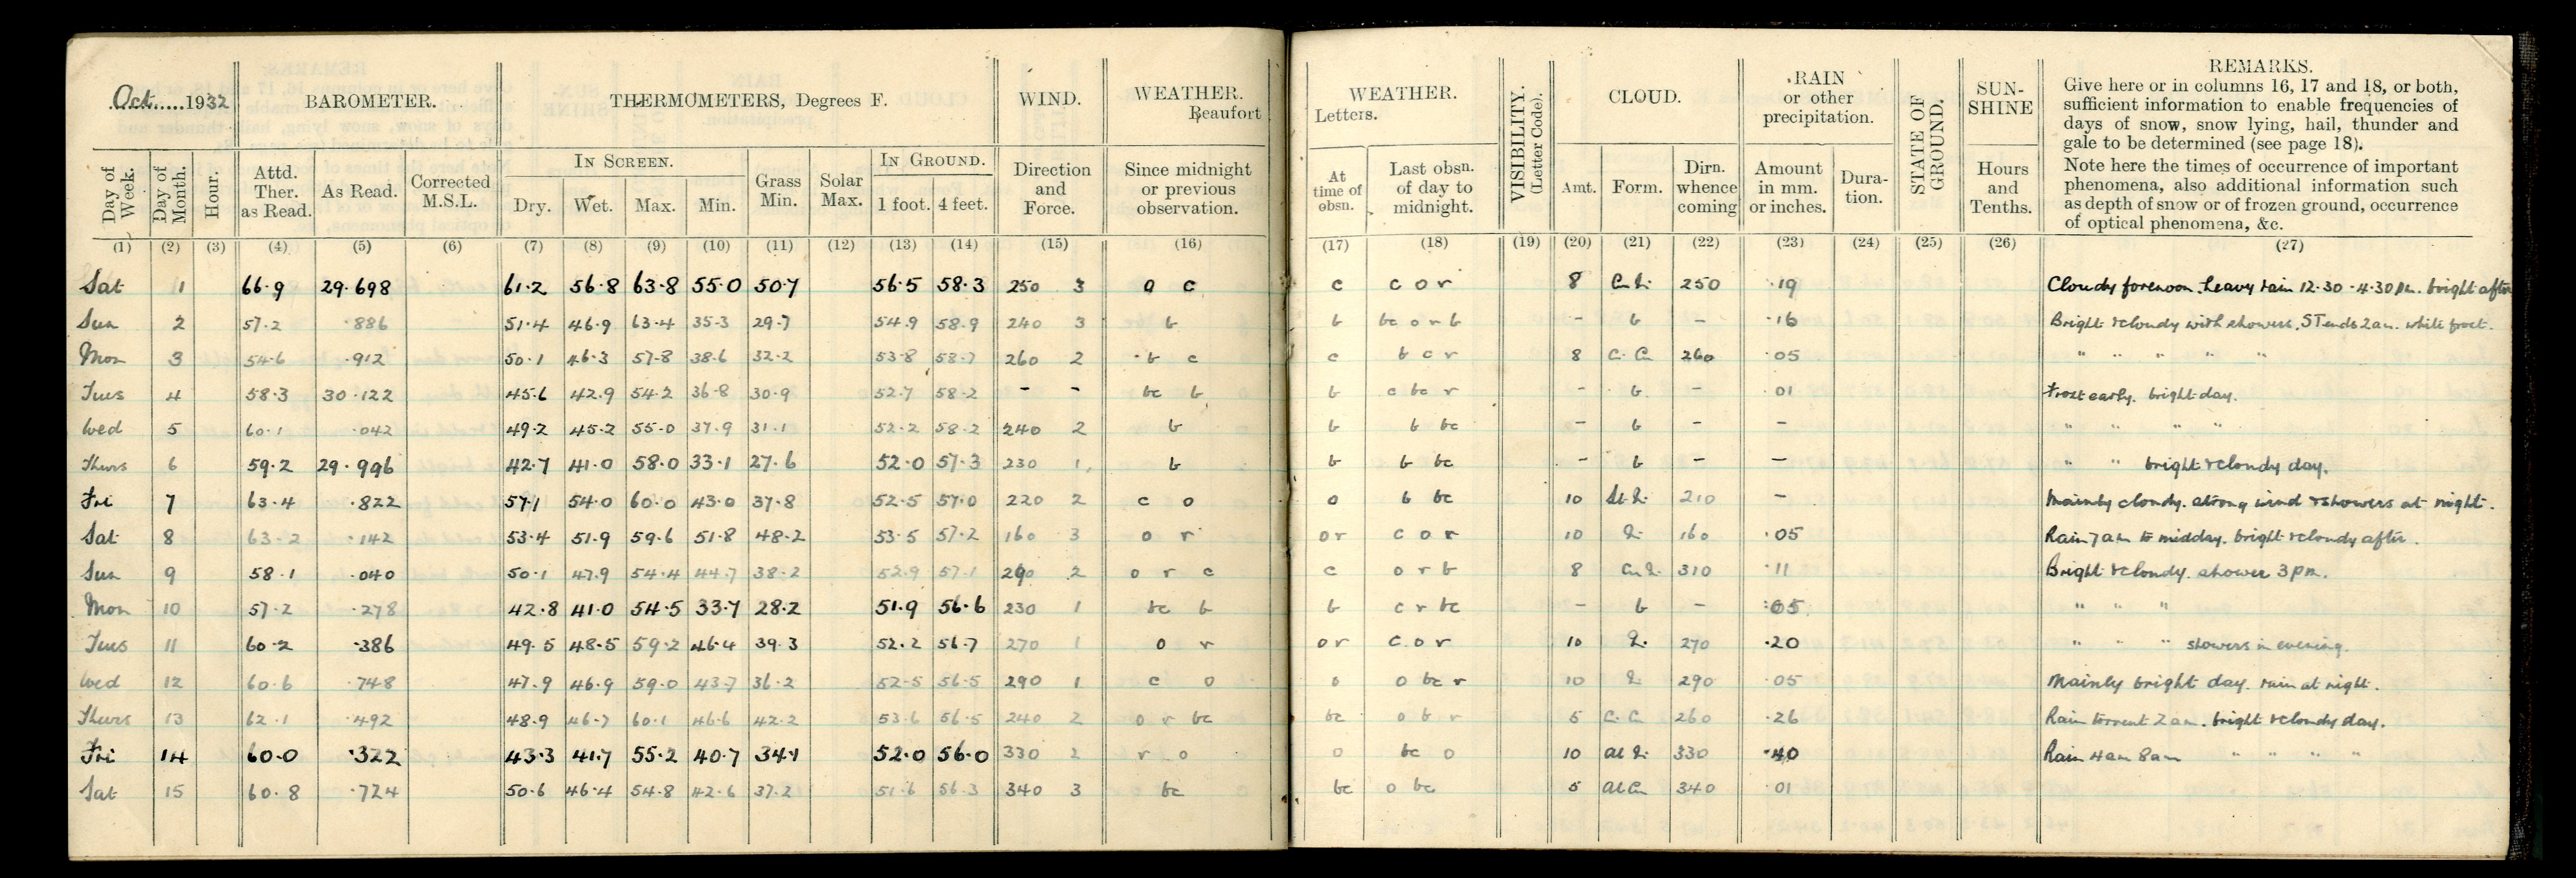 Oct.....1932 BAROMETER. THERMOMETERS, Degrees F. WIND. WEATHER. Beaufort WEATHER. Letters. VISIBILITY. (Letter Code). CLOUD. RAIN or other precipitation. STATE OF GROUND. SUN-SHINE REMARKS.
Give here or in columns 16, 17 and 18, or both,
sufficient information to enable frequencies of
days of snow, snow lying, hail, thunder and
gale to be determined (see page 18).
Note here the times of occurrence of important
phenomena, also additional information such
as depth of snow or of frozen ground, occurrence
of optical phenomena, &c.
Day of Week. Day of Month. Hour. Attd. Ther. as Read. As Read. Corrected M.S.L. IN SCREEN. Dry. Wet. Max. Min. Grass Min. Solar Max. IN GROUND. 1 foot. 4 feet. Direction and Force. Since midnight or previous observation. At time of obsn. Last obsn. of day to midnight. Amt. Form. Dirn. whence coming Amount in mm. or inches. Dura-tion. Hours and Tenths.
(1) (2) (3) (4) (5) (6) (7) (8) (9) (10) (11) (12) (13) (14) (15) (16) (17) (18) (19) (20) (21) (22) (23) (24) (25) (26) (27)
Sat 1 66.9 29.698 61.2 56.8 63.8 55.0 50.7 56.5 58.3 250 3 o c c c o r 8 250 .19 Cloudy forenoon. heavy rain 12.30-4.30 pm. bright after
Sun 2 57.2 .886 51.4 46.9 63.4 35.3 29.7 54.9 58.9 240 3 b b bc o r b - b - .16 Bright & cloudy with showers. white frost.
Mon 3 54.6 .912 50.1 46.3 57.8 38.6 32.2 53.8 58.7 260 2 b c c b c r 8 C. Cu 260 .05 " " " " "
Tues 4 58.3 30.122 45.6 42.9 54.2 36.8 30.9 52.7 58.2 - - bc b b c bc r - b - .01 Frost early. bright day.
Wed 5 60.1 .042 49.2 45.2 55.0 37.9 31.1 52.2 58.2 240 2 b b b bc - b - - " " " "
Thurs 6 59.2 29.996 42.7 41.0 58.0 33.1 27.6 52.0 57.3 230 1 b b b bc - b - - " " bright & cloudy day.
Fri 7 63.4 .822 57.1 54.0 60.0 43.0 37.8 52.5 57.0 220 2 c o o b bc 10 210 - Mainly cloudy. strong wind & showers at night.
Sat 8 63.2 .142 53.4 51.9 59.6 51.8 48.2 53.5 57.2 160 3 o r o r c o r 10 160 .05 Rain 7am to midday. bright & cloudy after.
Sun 9 58.1 .040 50.1 47.9 54.4 44.7 38.2 52.9 57.1 290 2 o r c c o r b 8 310 .11 Bright & cloudy. shower 3pm.
Mon 10 57.2 .278 42.8 41.0 54.5 33.7 28.2 51.9 56.6 230 1 bc b b c r bc - b - .05 " " "
Tues 11 60.2 .386 49.5 48.5 59.2 46.4 39.3 52.2 56.7 270 1 o r o r c o r 10 270 .20 " " " showers in evening.
Wed 12 60.6 .748 47.9 46.9 59.0 43.7 36.2 52.5 56.5 290 1 c o o o bc r 10 290 .05 Mainly bright day. rain at night.
Thurs 13 62.1 .492 48.9 46.7 60.1 46.6 42.2 53.6 56.5 240 2 o r bc bc o b r 5 C. C. 260 .26 Rain torrent 2am. bright & cloudy day.
Fri 14 60.0 .322 43.3 41.7 55.2 40.7 34.1 52.0 56.0 330 2 r o o bc o 10 330 .40 Rain 4am 8am " " " "
Sat 15 60.8 .724 50.6 46.4 54.8 42.6 37.2 51.6 56.3 340 3 bc bc o bc 5 Al Cu 340 .01